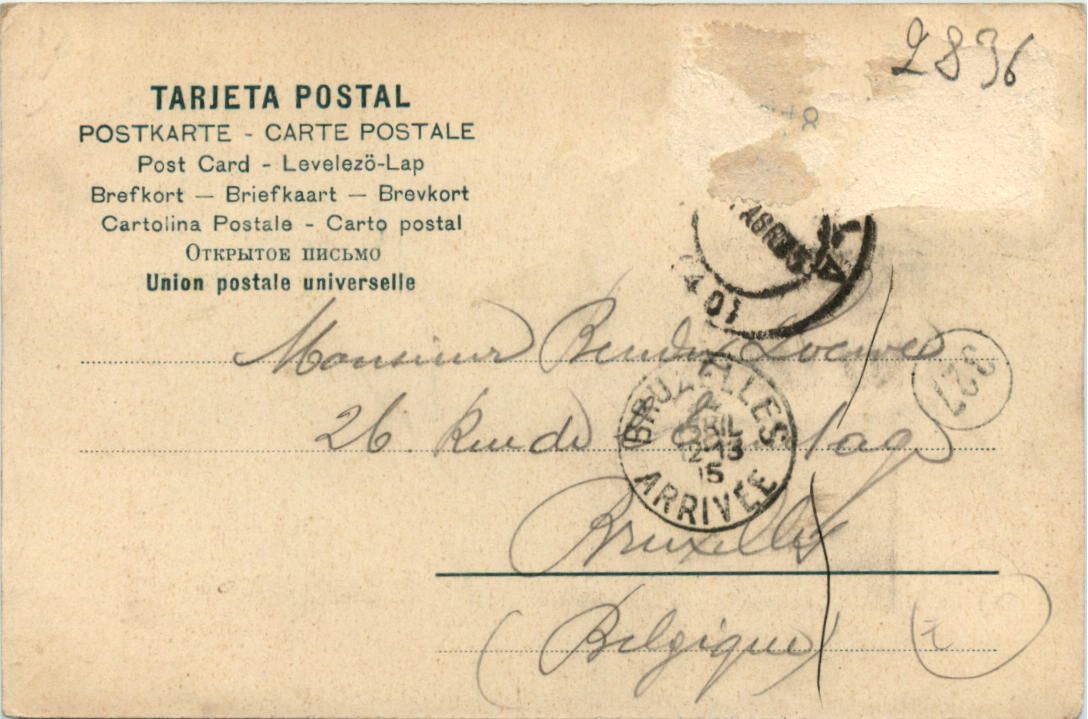 2896
TARJETA POSTAL
POSTKARTE - CARTE POSTALE
Post Card - Levelezö-Lap
Brefkort — Briefkaart — Brevkort
Cartolina Postale - Carto postal
Открытое письмо
Union postale universelle
Monsieur
327
26 Rue de
BRUXELLES
ARRIVÉE
Bruxelles
(Belgique)